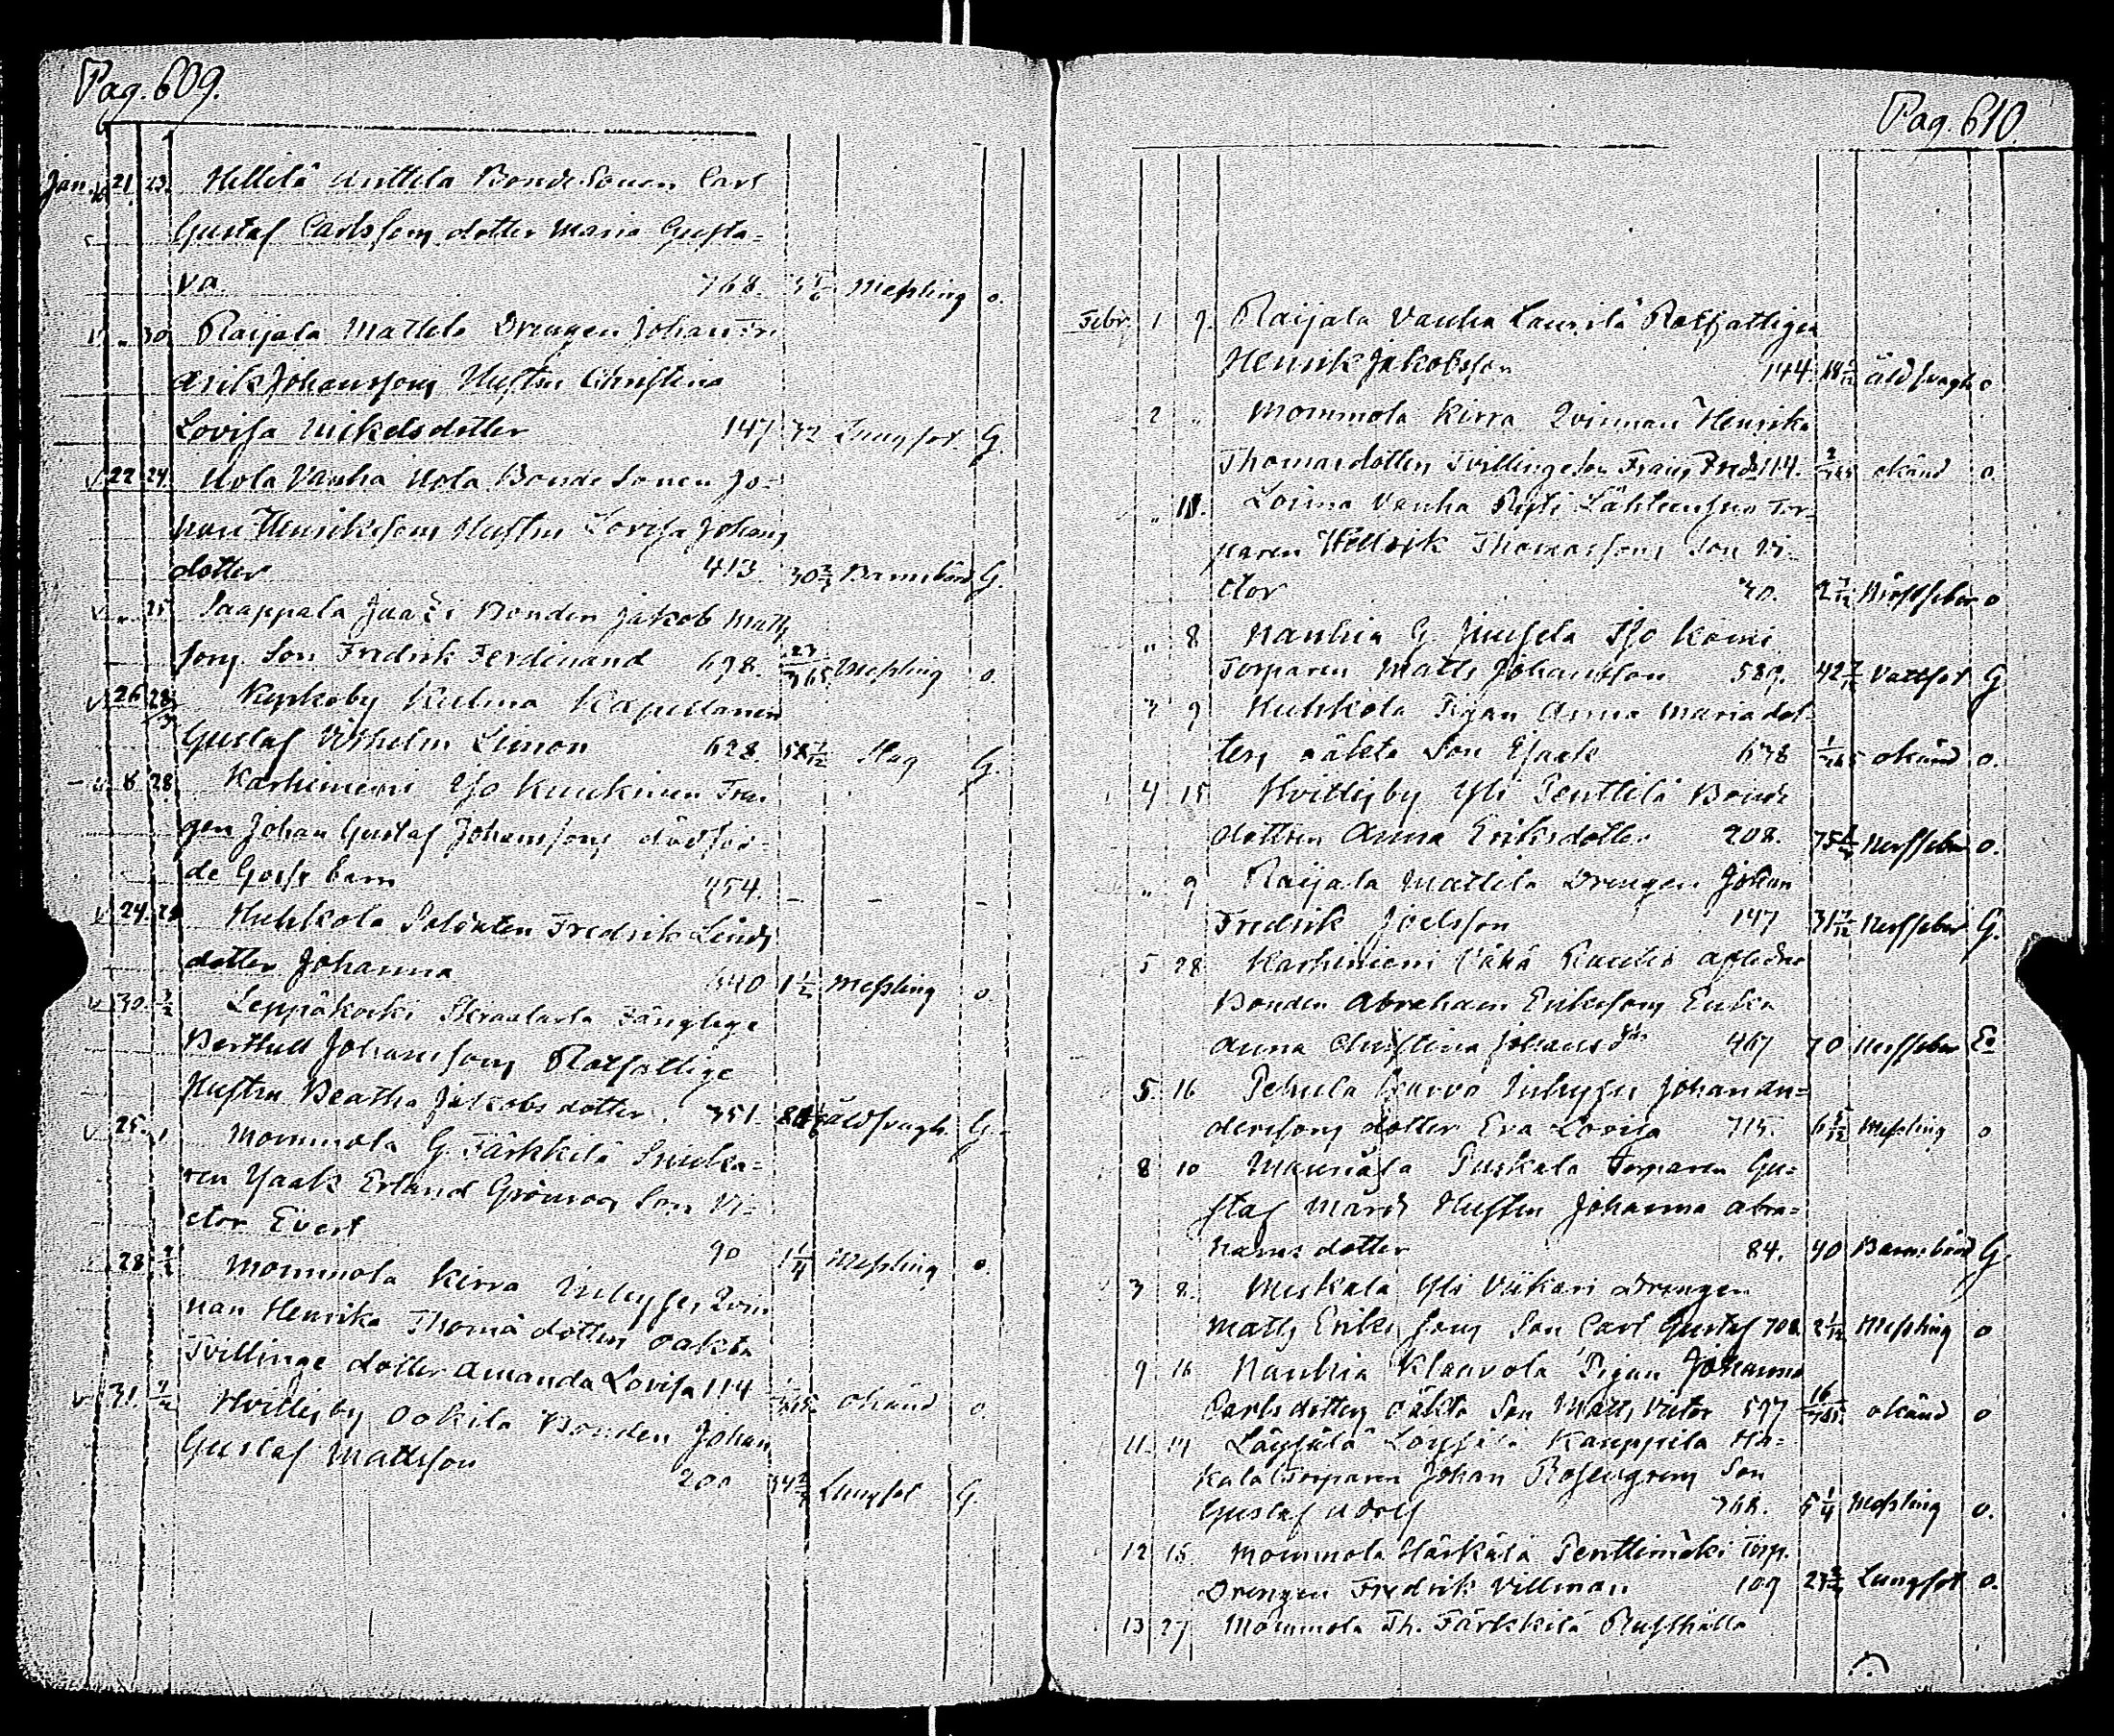 Pag. 609.
Jan. 21. 23. Hillilä Anttila Bonde Sonen Carl
Gustaf Carlssons dotter Maria Gusta=
va. 768. Messling o.
" 30 Raijala Mattila Drengen Johan Fre
drik Johanssons Hustru Christina
Lovisa Mikelsdotter 147 32 Lungsot. G.
22 24. Uola Vanha Uola Bonde Sonen Jo=
han Henrikssons Hustru Lovisa Johans
dotter 413. Barnsbörd G.
" 25 Saappala Bonden Jakob Matts
sons Son Fredrik Ferdinand 698. Messling o.
26 Kyrkoby Kulma Kapellanen
Gustaf Vilhelm Limon 628. Slag G.
8 28. Karhiniemi Yso Kuukinen Dren
gen Johan Gustaf Johanssons dödföd=
de Gosse barn 454. - - -
24. Huhkola Soldaten Fredrik Linds
dotter Johanna 640 1 Messling o.
30. Leppäkoski Fånglege
Berthell Johanssons Rotfattige
Hustru Beatha Jakobsdotter. 351. åldsvagh. G.
25. 1 Mommola G. Färkkilä Snicka=
ren Ysaak Erland Grönroos Son Vi=
ctor Evert 90 Messling o.
28 Mommola Kirra Inhyses Qvin
nan Henrika Thomædotters oäkta
Tvillinge dotter Amanda Lovisa 114 okänd o.
31. Hvittisby Ookila Bonden Johan
Gustaf Mattsson 200 Lungsot G.
Pag. 610
Febr. 1 9. Raijala Vanha Laurila Rotfattigen
Henrik Jakobsson 144 åldsvagh o
2 " Mommola Kirra Qvinnan Henrika
Thomasdotters Tvillinge Son Frans Fredr 114. okänd o.
" 11. Loima Vanha Lähteensuo Tor=
paren Thomassons Son Vi=
ctor 40. Bröstfeber o
" 8 Nanhia G. Juusela Yso Kömi
Torparen Matts Johansson 589. Vattsot G
3 9 Huhkola Pigan Anna Mariadot=
ters oäkta Son Ysaak 638 okänd o.
4 15 Hvittisby Yli Penttilä Bonde
dottren Anna Eriksdotter 208. Nerffeber o.
" 9 Raijala Mattila Drengen Johan
Fredrik Joelsson 147 Nerffeber G.
5 28 Karhiniemi Vähä Rautio aflidne
Bonden Abraham Erikssons Enka
Anna Christina Johansdr 467 70 Nerffeber
5. 16 Pehula Inhyses Johan An=
derssons dotter Eva Lovisa 715. Messling o
8 10 Mauriala Puskala Torparen Gu=
staf Mårds Hustru Johanna Abra=
hams dotter 84. 40 Barnsbörd G.
3 8. Meskala Yli Viikari Drengen
Matts Erikssons Son Carl Gustaf 708 Messling o
9 16 Nanhia Klaavola Pigan Johanna
Carlsdotters oäkta Son Matts Victor 597 16/365 okänd o
11. 14 Kauppila Ha=
kala Torparen Johan Rosengrens Son
Gustaf Adolf 768. Messling o.
12 15. Mommola Härkälä Penttimäki Torp.
Drengen Fredrik Villman 109 Lungsot o.
13 27 Mommola Th. Färkkilä Rusthålla